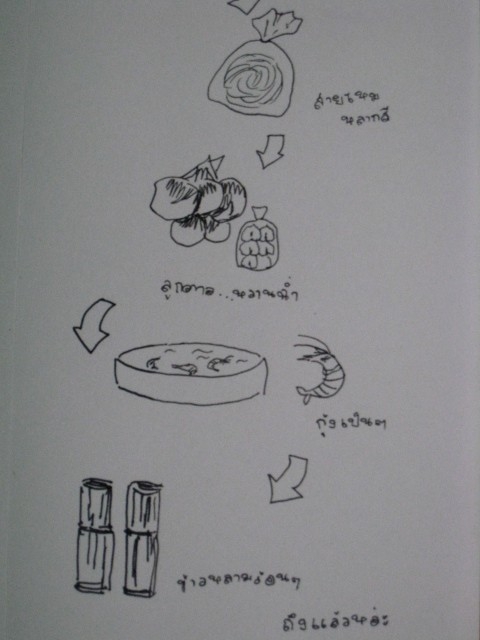 สายไหม
หลากสี
ลูกตาล...หวานฉ่ำ
กุ้งเป็นๆ
ข้าวหลามร้อนๆ
ถึงแล้วหล่ะ